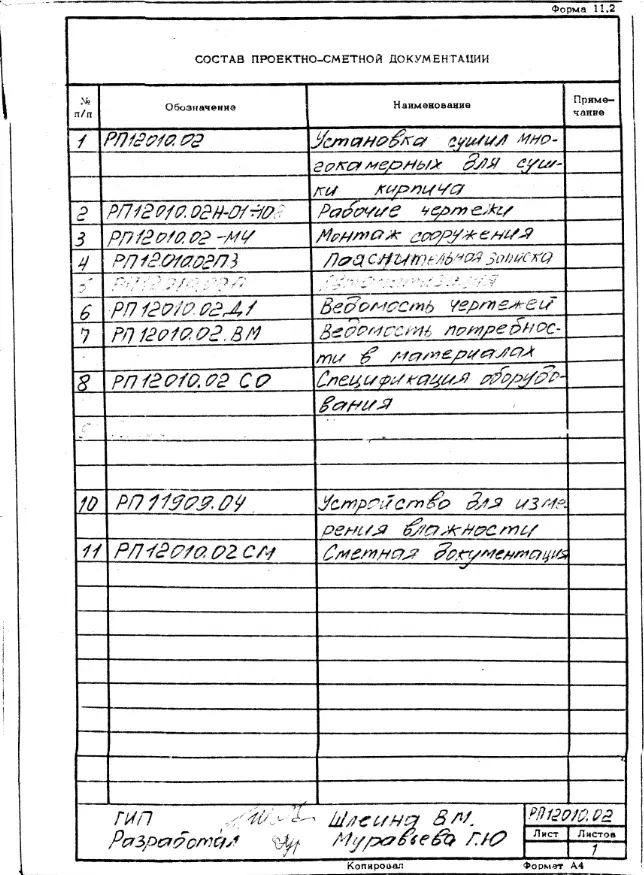 Форма 11.2
СОСТАВ ПРОЕКТНО-СМЕТНОЙ ДОКУМЕНТАЦИИ
№ п/п Обозначение Наименование Приме-
чание
1 РП12010.02 Установка сушил мно-
гокамерных для суш-
ки кирпича
2 РП12010.02Н-01÷10 Рабочие чертежи
3 РП12010.02-МЧ Монтаж сооружения
4 РП12010.02ПЗ Пояснительная записка
5
6 РП12010.02Д1 Ведомость чертежей
7 РП12010.02.ВМ Ведомость потребнос-
ти в материалах
8 РП12010.02 СО Спецификация оборудо-
вания
10 РП11909.04 Устройство для изме-
рения влажности
11 РП12010.02СМ Сметная документация
ГИП Шлеина В М. РП12010.02
Разработал Муравьева Г.Ю Лист Листов
1
Копировал Формат А4